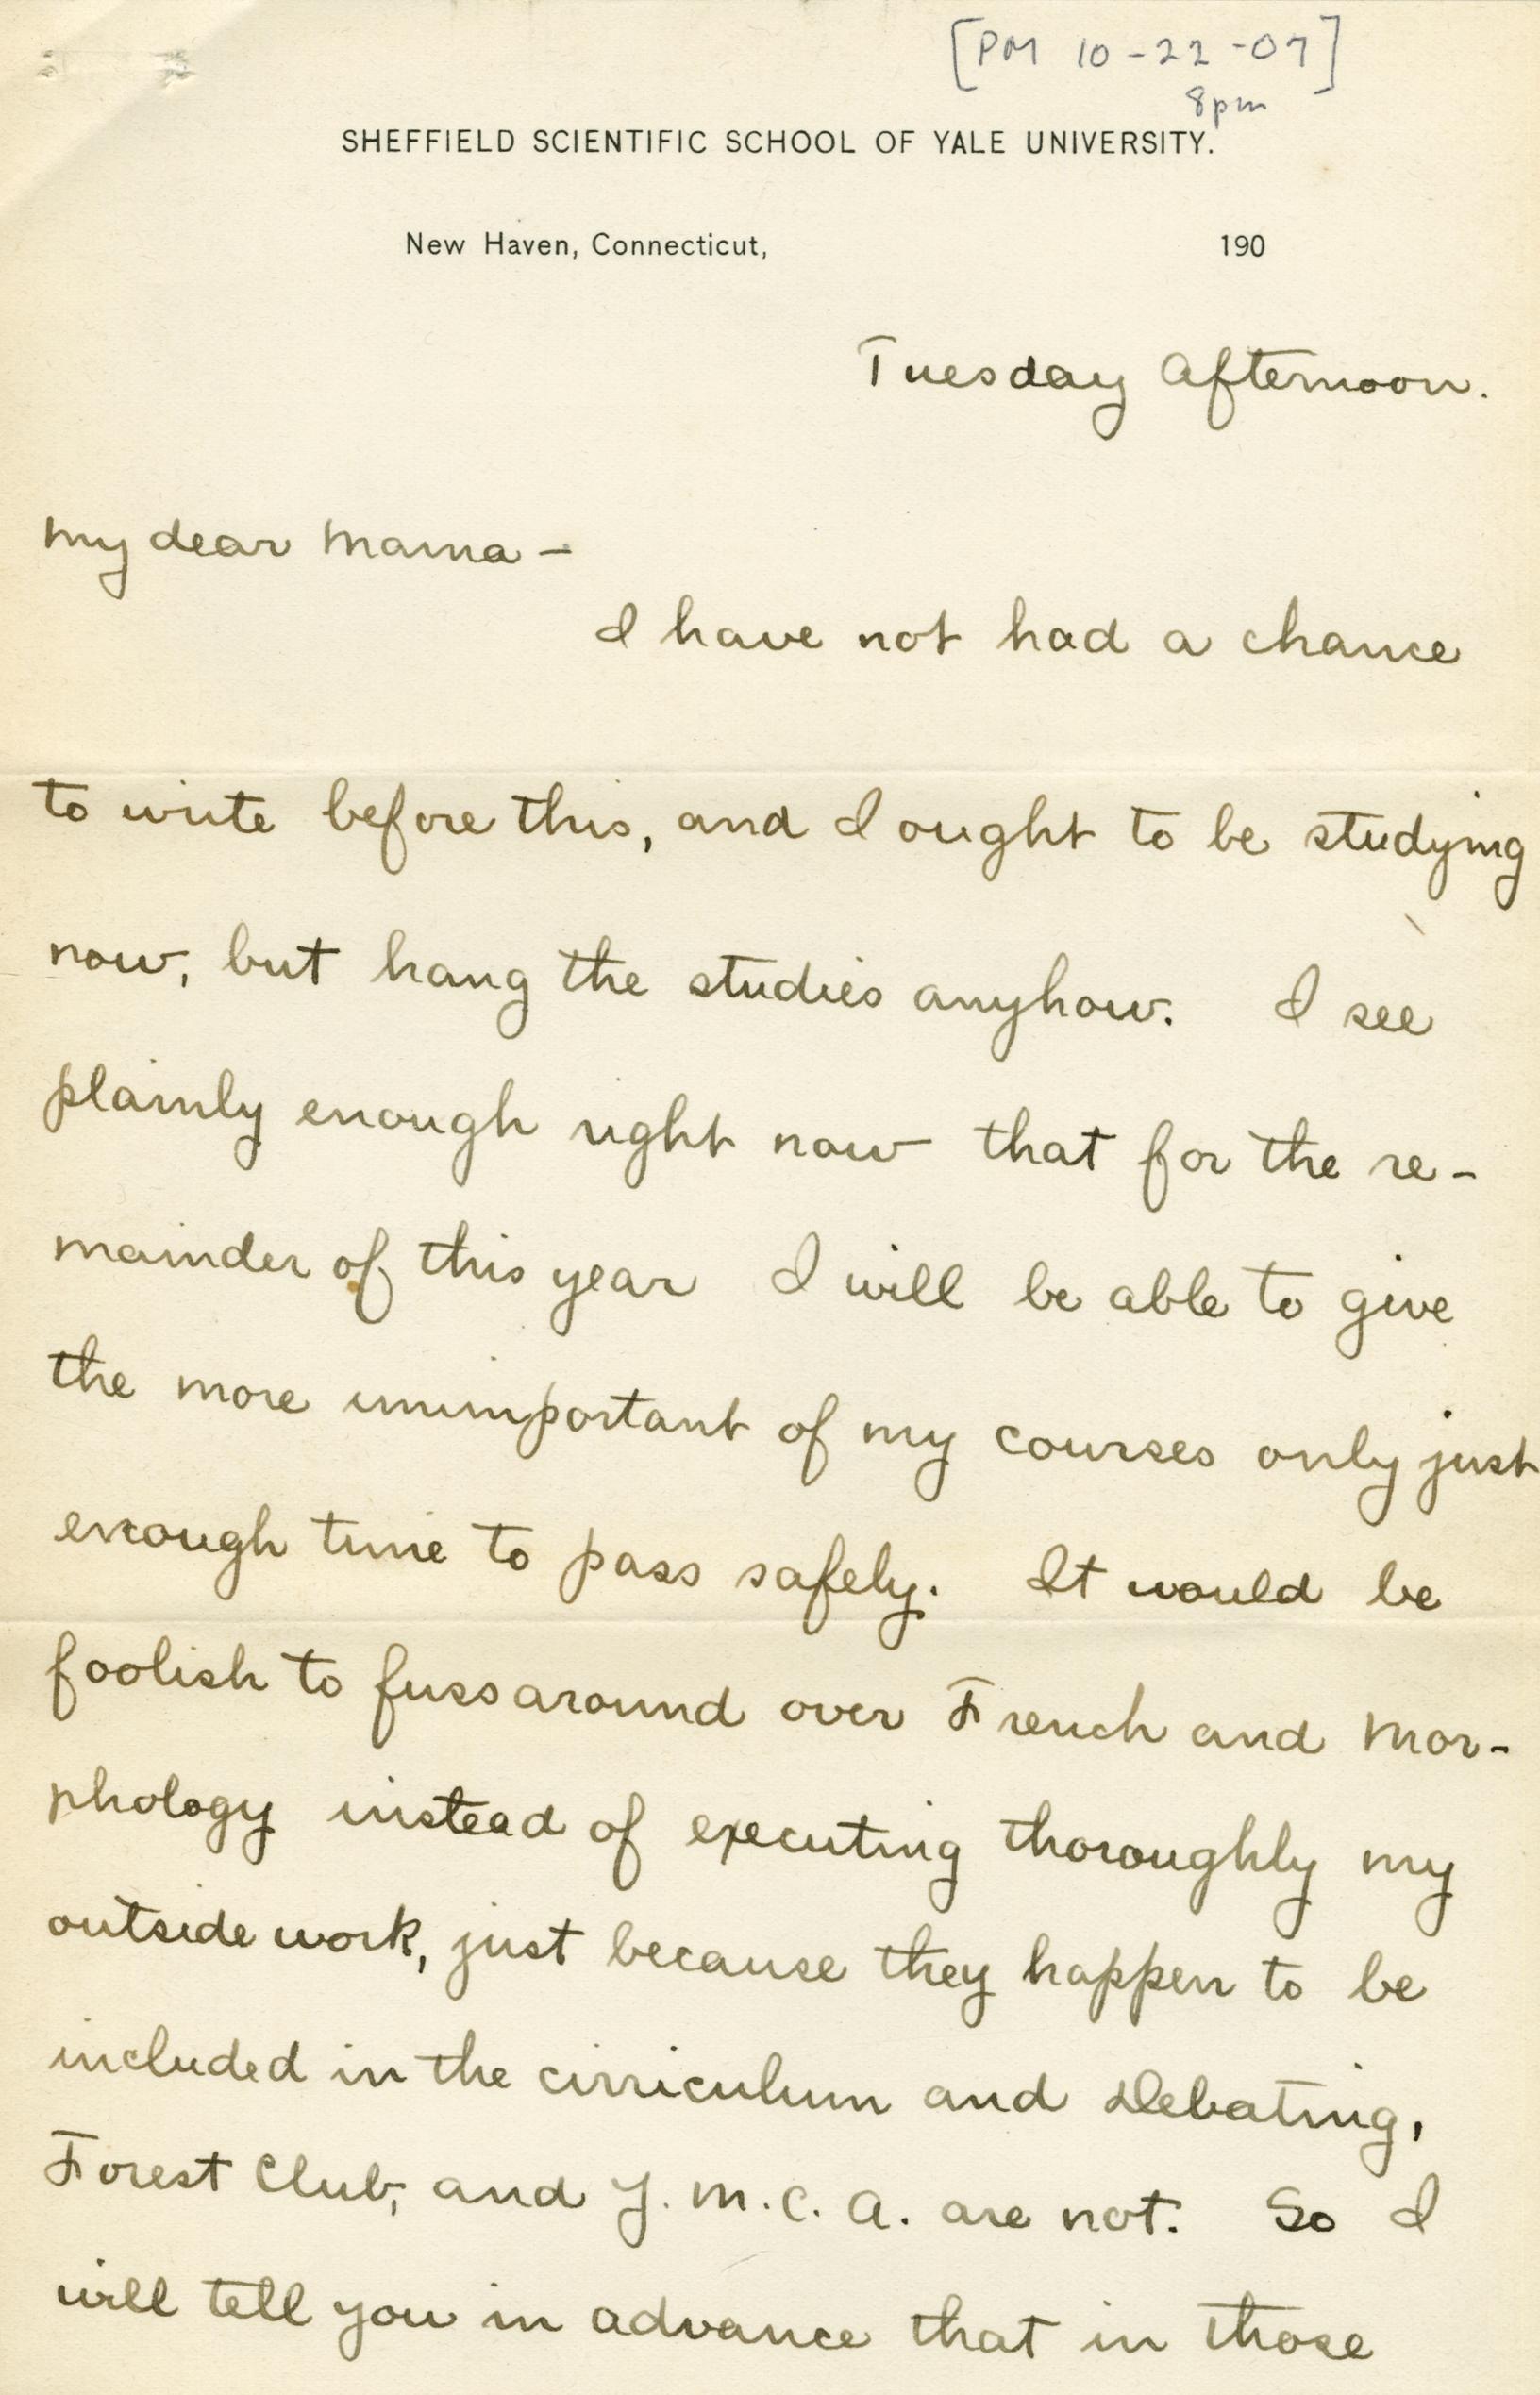 [PM 10-22-07]
8pm
SHEFFIELD SCIENTIFIC SCHOOL OF YALE UNIVERSITY.
New Haven, Connecticut, 190
Tuesday Afternoon.
My dear Mama –
I have not had a chance
to write before this, and I ought to be studying
now, but hang the studies anyhow. I see
plainly enough right now that for the re-
mainder of this year I will be able to give
the more unimportant of my courses only just
enough time to pass safely. It would be
foolish to fuss around over French and Mor-
phology instead of executing thoroughly my
outside work, just because they happen to be
included in the cirriculum and Debating,
Forest Club, and Y.M.C.A. are not. So I
will tell you in advance that in those